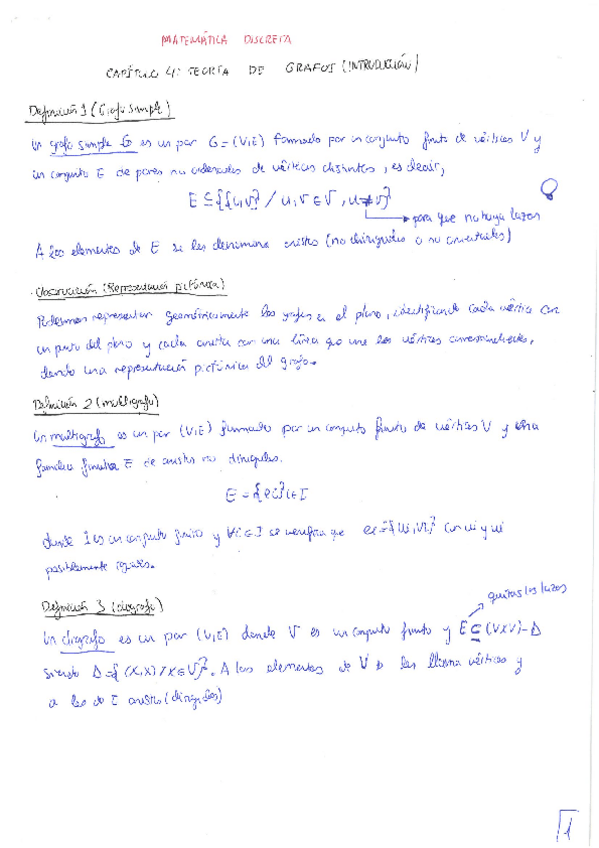 MATEMÁTICA DISCRETA
CAPÍTULO 4: TEORÍA DE GRAFOS (INTRODUCCIÓN)
Definición 1 (Grafo simple)
Un grafo simple G es un par G=(V,E) formado por un conjunto finito de vértices V y
un conjunto E de pares no ordenados de vértices distintos, es decir,
E ⊆ {{u,v} / u,v ∈ V, u≠v}
para que no haya lazos
A los elementos de E se les denomina aristas (no dirigidas o no orientadas)
Observación (Representación pictórica)
Podemos representar geométricamente los grafos en el plano, identificando cada vértice con
un punto del plano y cada arista con una línea que une los vértices correspondientes,
dando una representación pictórica del grafo.
Definición 2 (multigrafo)
Un multigrafo es un par (V,E) formado por un conjunto finito de vértices V y otra
familia finita E de aristas no dirigidas.
E = {ei} i∈I
donde I es un conjunto finito y ∀i∈I se verifica que ei={ui,vi} con ui y vi
posiblemente iguales.
Definición 3 (digrafo)
quitas los lazos
Un digrafo es un par (V,E) donde V es un conjunto finito y E ⊆ (VxV)-Δ
siendo Δ={(x,x) / x∈V}. A los elementos de V se les llama vértices y
a los de E aristas (dirigidas)
1